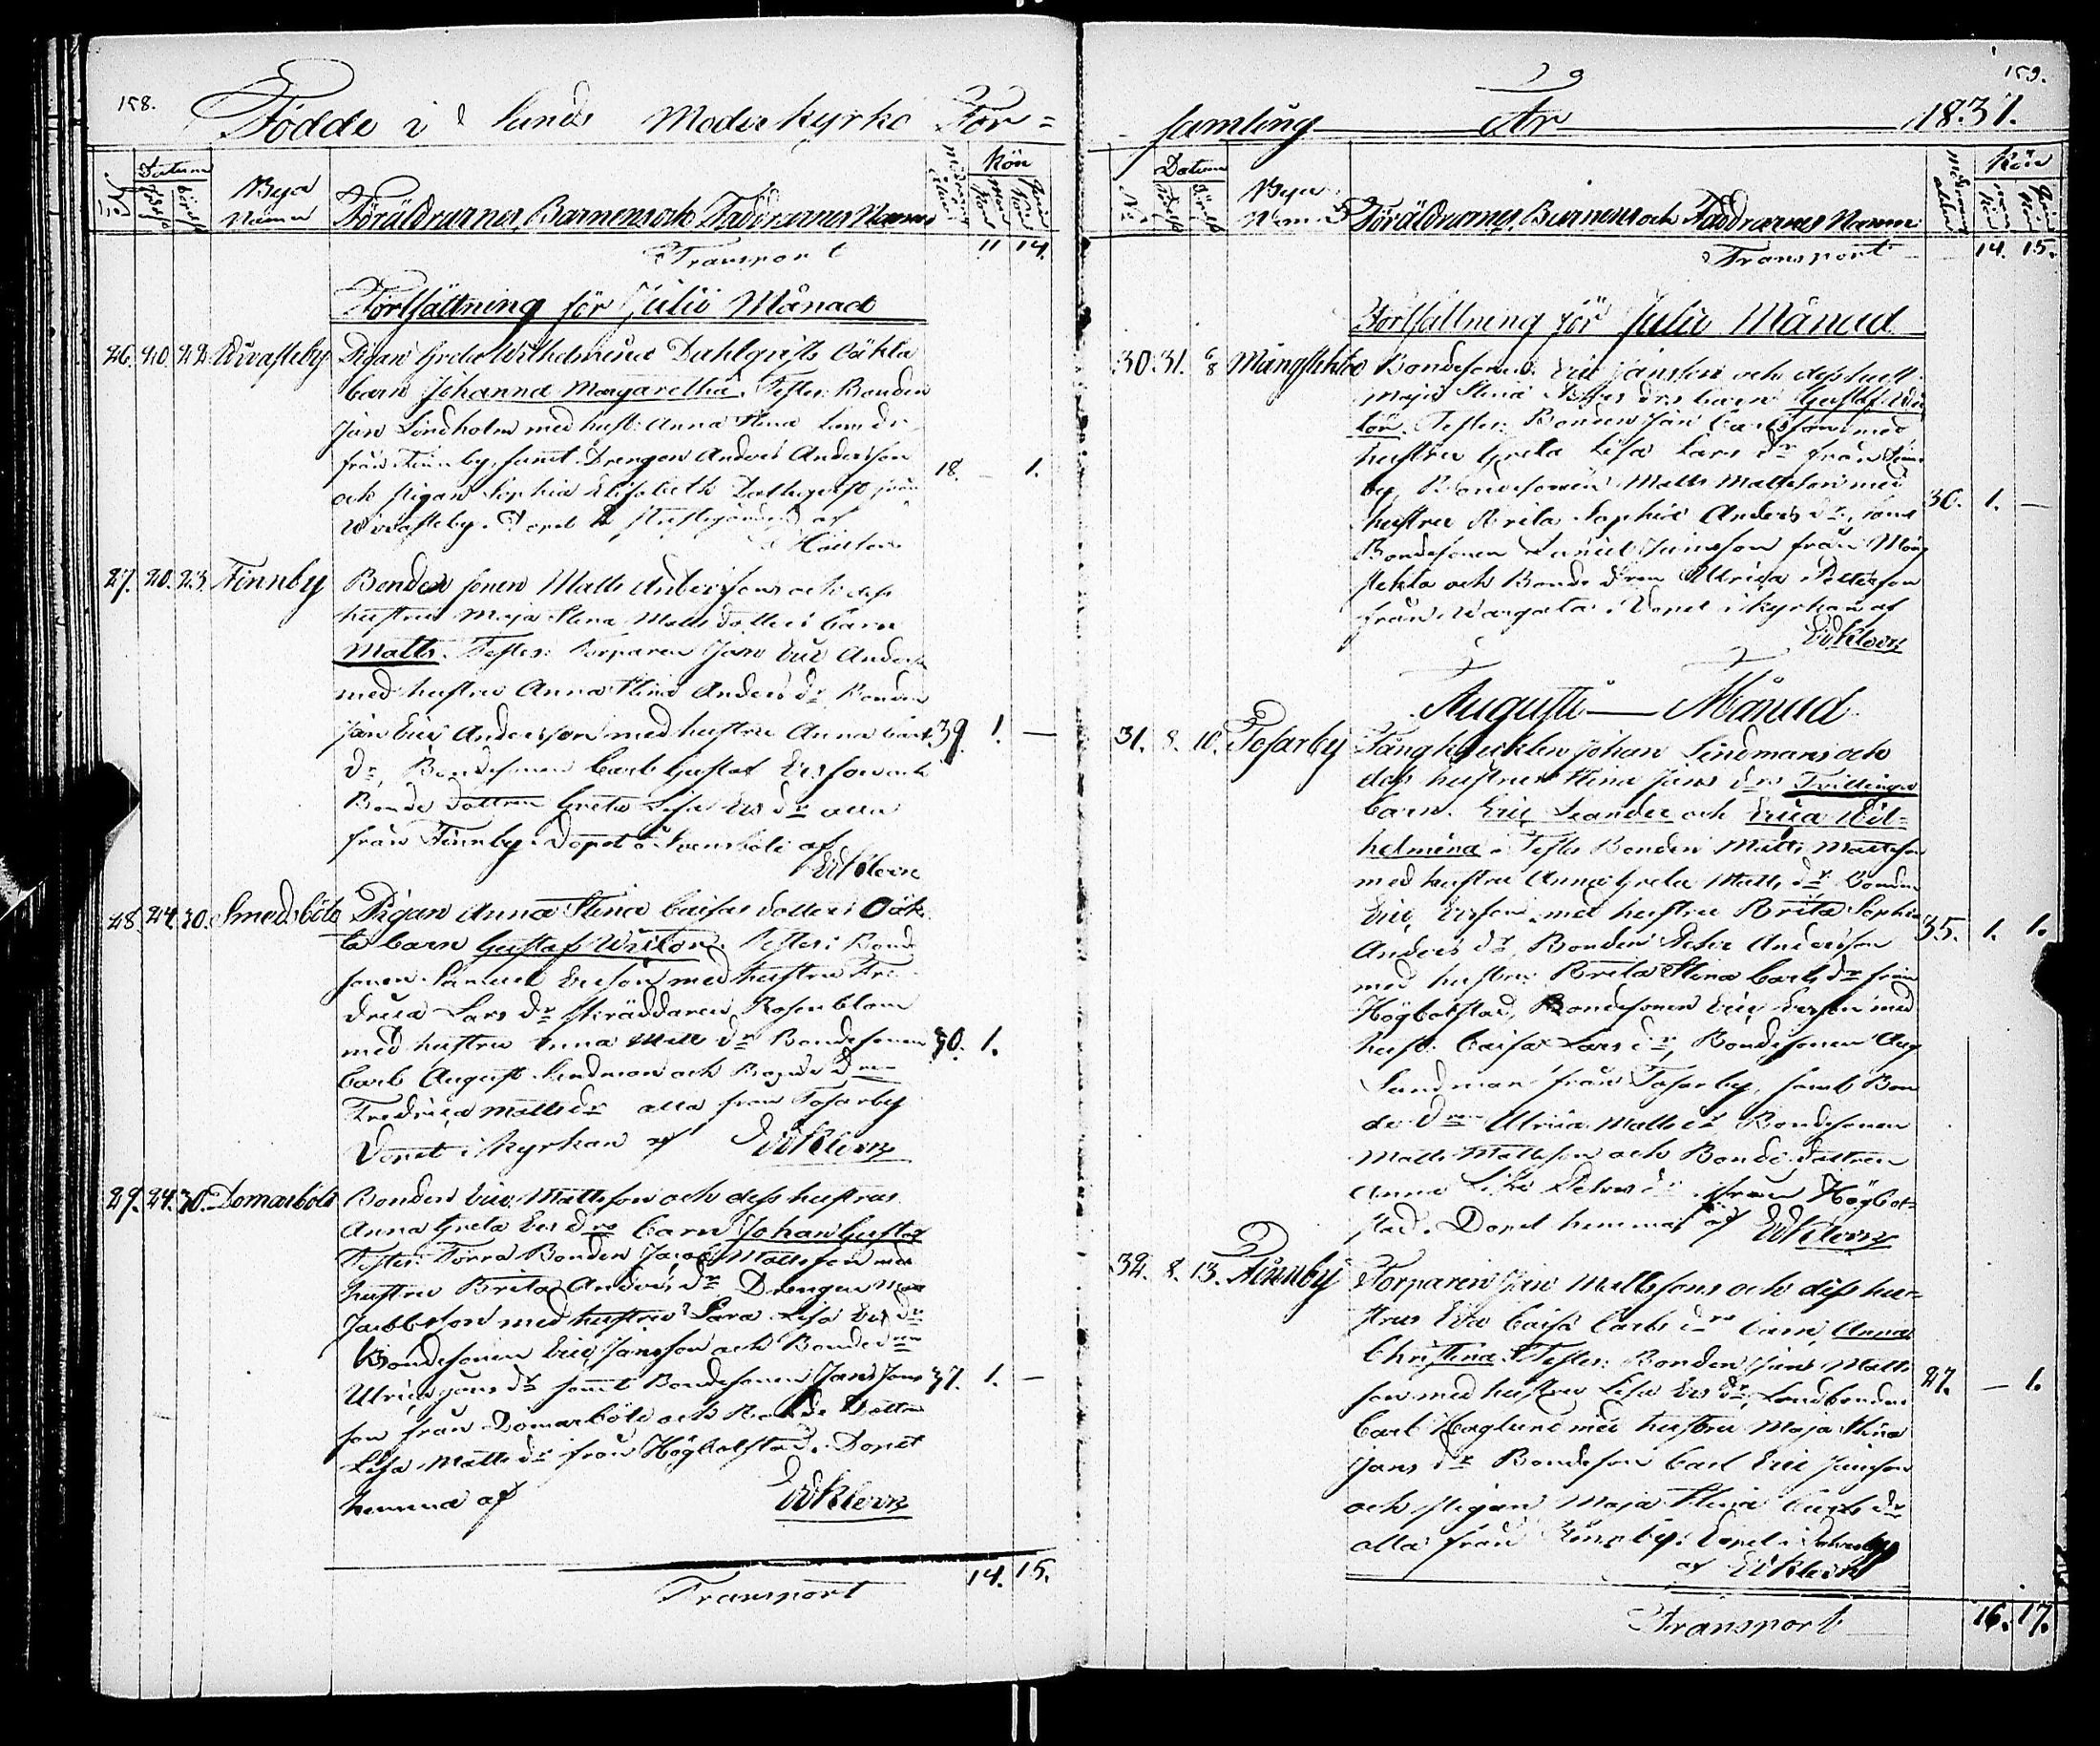 158.
Födde i Sunds Moderkyrko För=
No
Datum
Bya Namn
Föräldrarnes, Barnens och Faddrarnes Namn
Kön
Transport 11 14.
Fortsättning för Julii Månad
26. 20. 22. Pigan Greta Wilhelmina Dahlqvists Oäkta
barn Johanna Margaretha. Testes: Bonden
Jan Lindholm med hust: Anna Stina
från Finnby, samt Drengen Anders Andersson 18. – 1.
och Pigan Sophia Elisabeth från
af
27. 20. 23. Finnby Bonde sonen Matts Anderssons och dess
hustru Maja Stina Matts dotters barn
Matts. Testes: Torparen Jan Eric Anderss
med hustru Anna Stina Anders dr Bonden
Jan Eric Andersson med hustru Anna 39. 1. –
dr, Bondesonen Carl Gustaf Ersson och
Bonde dottren Greta Lisa Ers dr alla
från Finnby. Döpet i Svensböle af
EWKlerck
28. 24. 30. Smedsböle Pigan Anna Stina Caisas dotters Oäk
ta barn Gustaf Wictor. Testes: Bonde
sonen Samuel Ericson med hustru Fre
drica Lars dr Skräddaren Rosenblom
med hustru Anna Matts dr Bondesonen 30. 1.
Carl August Sundman och Bonde dren
Fredrica Matts dr alla från Tosarby
Döpet i Kyrkan af EWKlerck
29. 24. 30. Domarböle Bonden Eric Mattsson och dess hustrus
Anna Greta Ers drs barn Johan Gustaf
Testes: Förra Bonden Jacob Mattsson med
hustru Brita Anders dr Drengen
Jacobsson med hustru Sara Lisa Ers dr
Bondesonen Eric Jansson och Bonde dren
Ulrica Jans dr samt Bondesonen Jan Jans 37. 1. –
son från Domarböle och Bonde Dottren
Lisa Matts dr från Högbolstad. Döpet
hemma af EWKlerck
Transport 14. 15.
159.
samling År 1837.
No
Datum
Byа Namn
Föräldrarnes, Barnens och Faddrarnes Namn
Kön
Transport 14. 15.
Fortsättning för Julii Månad
30. 31. 6/8 Mångstekta Bondesonen Eric Janssons och dess hust
Maja Stina drs barn Gustaf Wic
tor. Testes: Bonden Jan Carlsson med
hustru Greta Lisa Lars dr från Finn
by, Bondesonen Matts Mattsson med 30. 1. –
hustru Brita Sophia Anders dr, samt
Bondesonen Daniel Jansson från Mång
stekta och Bonde dren Ulrica Pettersson
från Wargata. Döpet i Kyrkan af
EWKlerck
Augusti — Månad
31. 8. 10. Tosarby Johan Sundmans och
dess hustrus Stina Jans drs Tvillinge
barn. Eric Leander och Erica Wil=
helmina. Testes Bonden Matts Mattsson
med hustru Anna Greta Matts dr Bonden
Eric Ersson med hustru Brita Sophia 35. 1. 1.
Anders dr, Bonden Petter Andersson
med hustru Brita Stina Carls dr från
Högbolstad, Bondesonen Eric Ersson med
hust: Caisa Lars dr, Bondesonen Aug
Sundman från Tosarby, samt Bon
de dren Ulrica Matts dr Bondesonen
Matts Mattsson och Bonde dottren
Anna Lisa Petters dr från Högbol=
stad. Döpet hemma af EWKlerck
32. 8. 13. Finnby Torparen Jan Mattssons och dess hu=
strus Eva Caisa Carls drs barn, Anna
Christina. Testes: Bonden Jan Matts
son med hustru Lisa Ers dr, Landbonden 27. – 1.
Carl Haglund med hustru Maja Stina
Jans dr Bondeson Carl Eric Jansson
och Pigan Maja Stina Carls dr
alla från Finnby. Döpet i
af EWKlerck
Transport 16. 17.